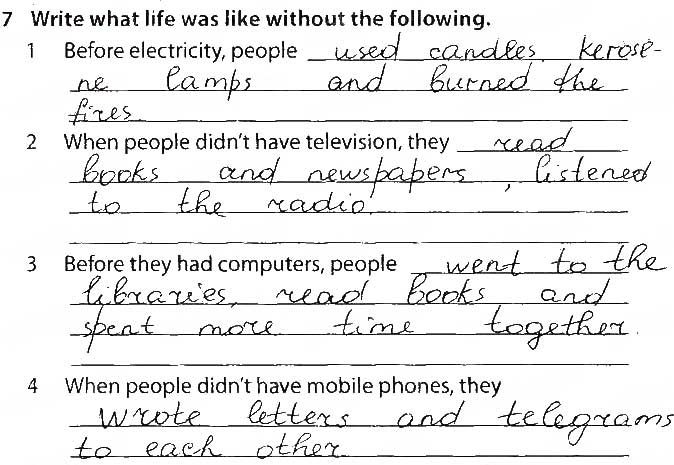 7 Write what life was like without the following.
1 Before electricity, people used candles, kerose-
ne lamps and burned the
fires
2 When people didn't have television, they read
books and newspapers, listened
to the radio.
3 Before they had computers, people went to the
libraries, read books and
spent more time together.
4 When people didn't have mobile phones, they
wrote letters and telegrams
to each other